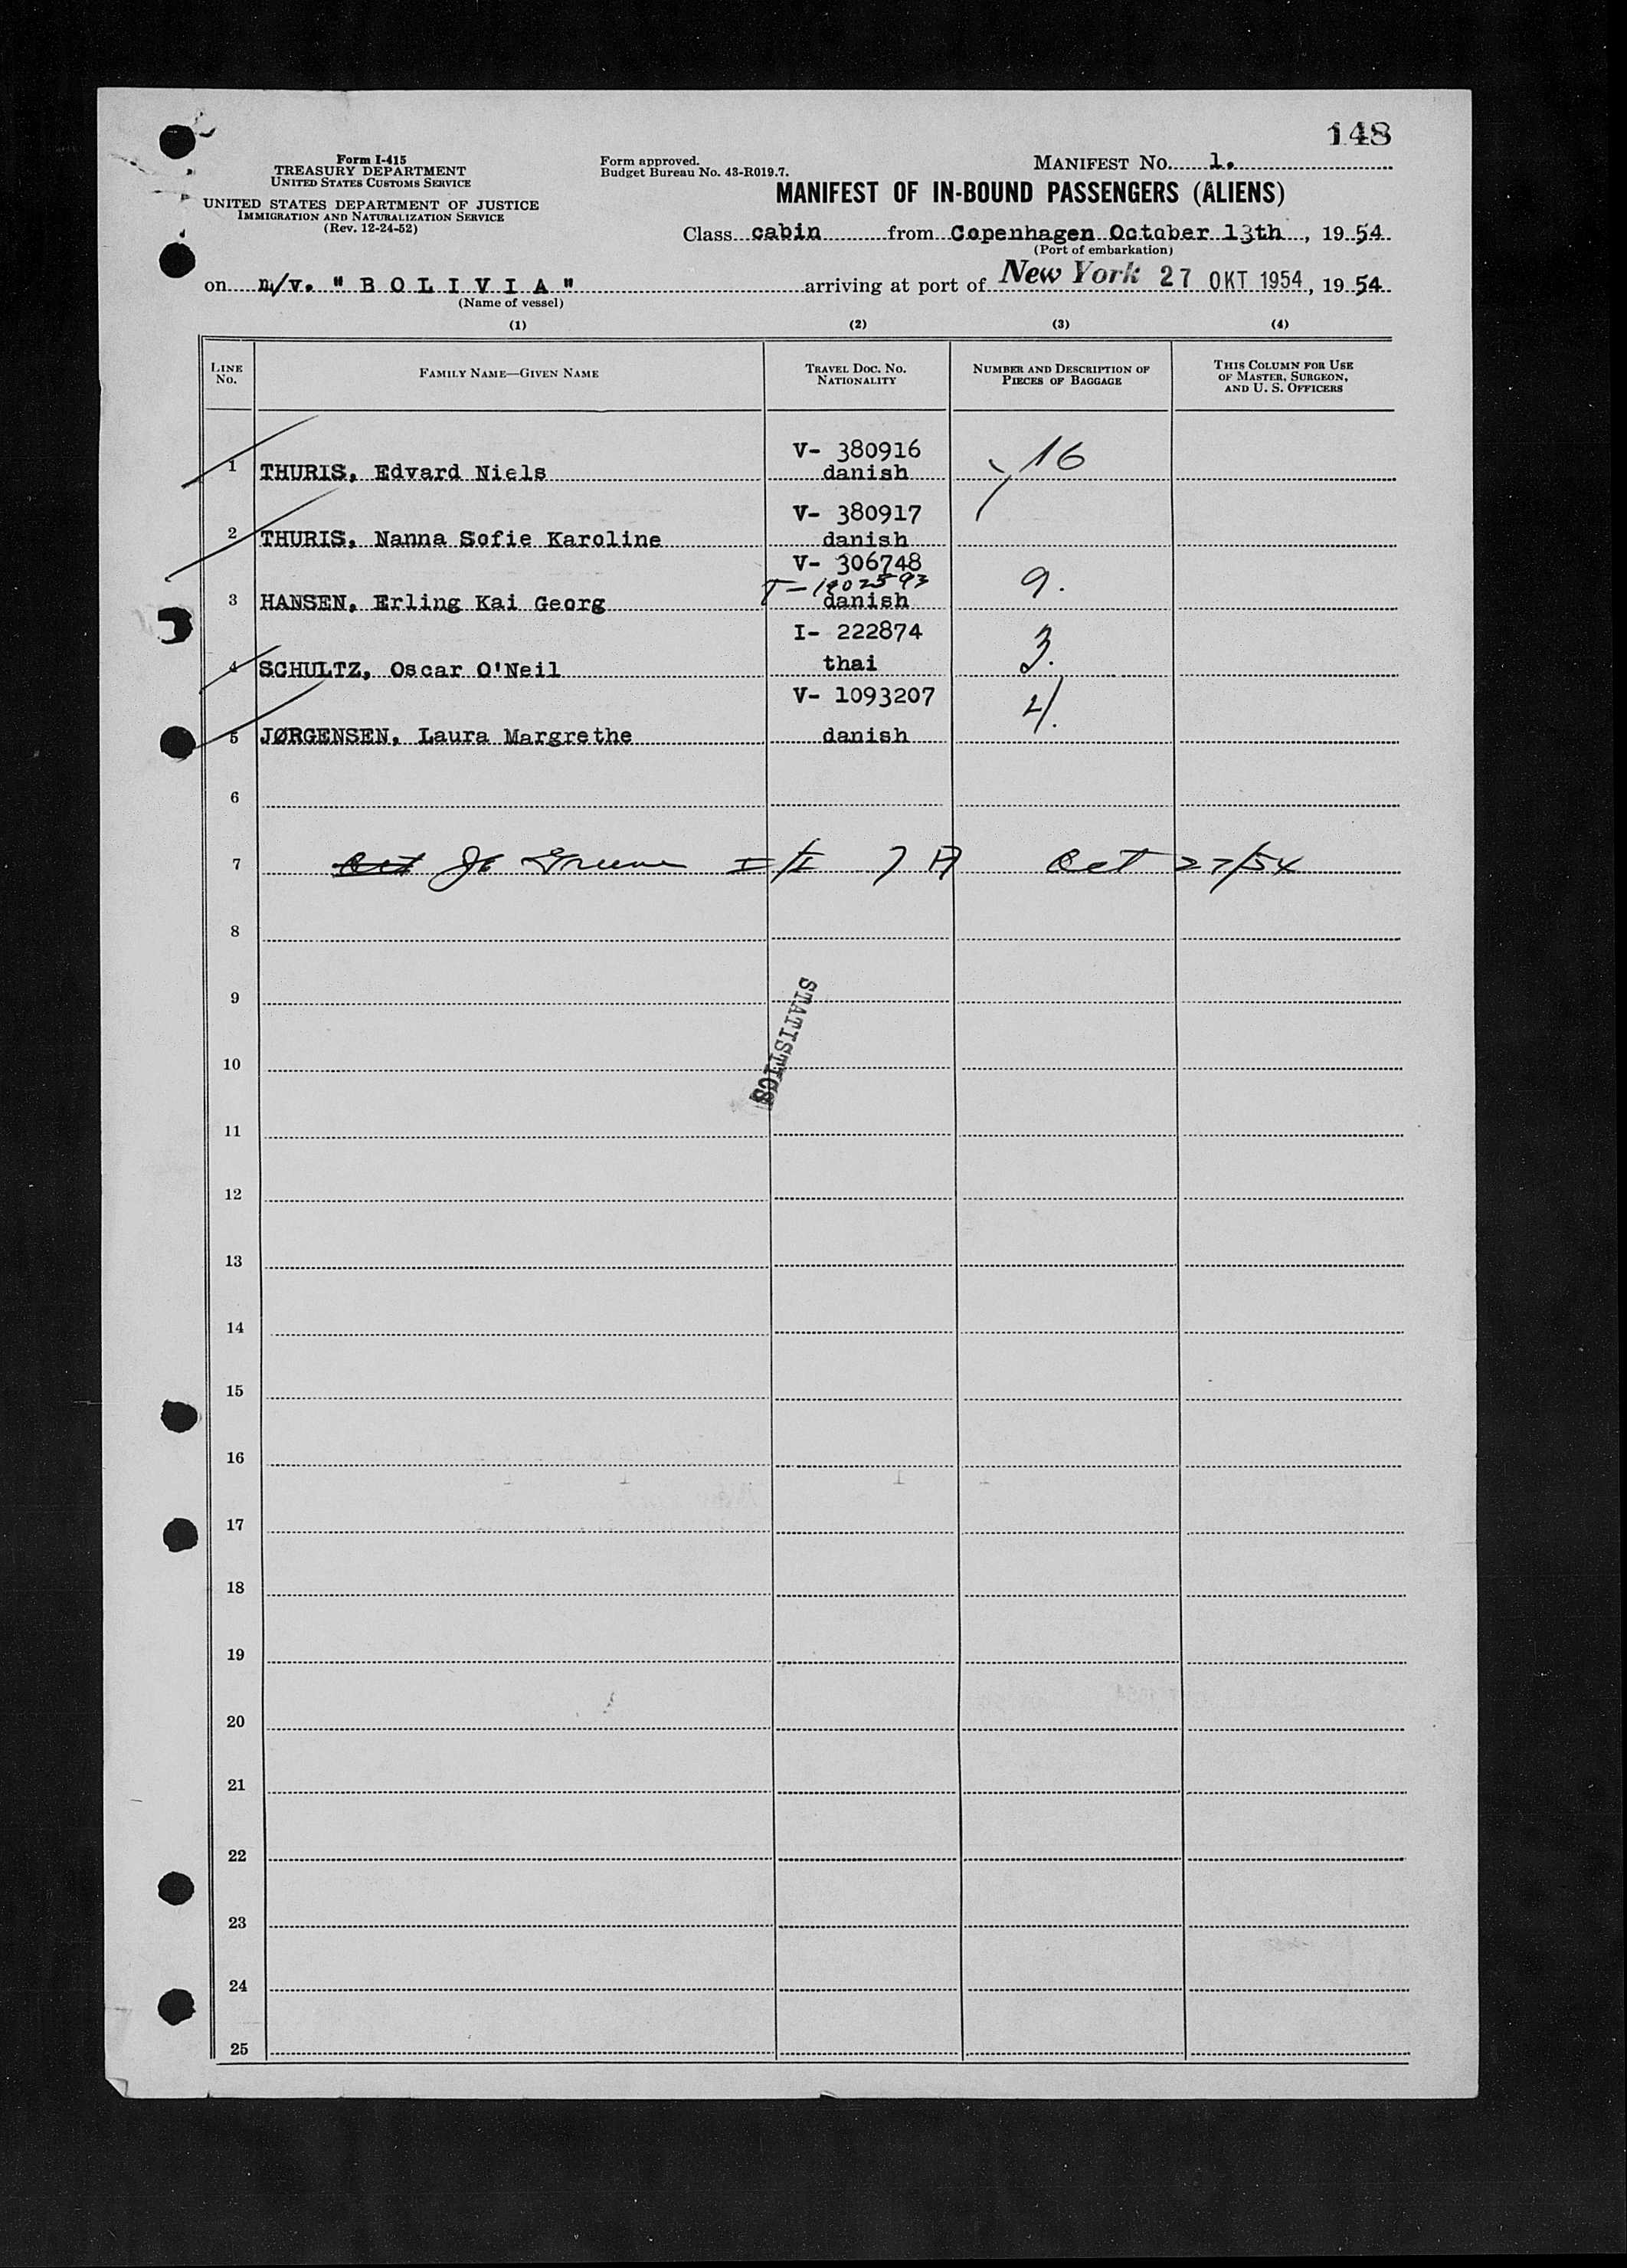 148
Form I-415
TREASURY DEPARTMENT
UNITED STATES CUSTOMS SERVICE
UNITED STATES DEPARTMENT OF JUSTICE
IMMIGRATION AND NATURALIZATION SERVICE
(Rev. 12-24-52)
Form approved.
Budget Bureau No. 43-R019.7.
MANIFEST NO. 1.
MANIFEST OF IN-BOUND PASSENGERS (ALIENS)
Class cabin from Copenhagen October 13th, 19 54
(Port of embarkation)
on m/v. " B O L I V I A " arriving at port of New York 27 OKT 1954, 19 54
(Name of vessel)
(1) (2) (3) (4)
LINE NO. FAMILY NAME—GIVEN NAME TRAVEL DOC. NO. NATIONALITY NUMBER AND DESCRIPTION OF PIECES OF BAGGAGE THIS COLUMN FOR USE OF MASTER, SURGEON, AND U. S. OFFICERS
V- 380916
1 THURIS, Edvard Niels danish 16
V- 380917
2 THURIS, Nanna Sofie Karoline danish
V- 306748
3 HANSEN, Erling Kai Georg danish 9.
I- 222874
4 SCHULTZ, Oscar O'Neil thai 3.
V- 1093207
5 JØRGENSEN, Laura Margrethe danish 4.
6
7 Oct 27/54
8
9
STATISTICS
10
11
12
13
14
15
16
17
18
19
20
21
22
23
24
25